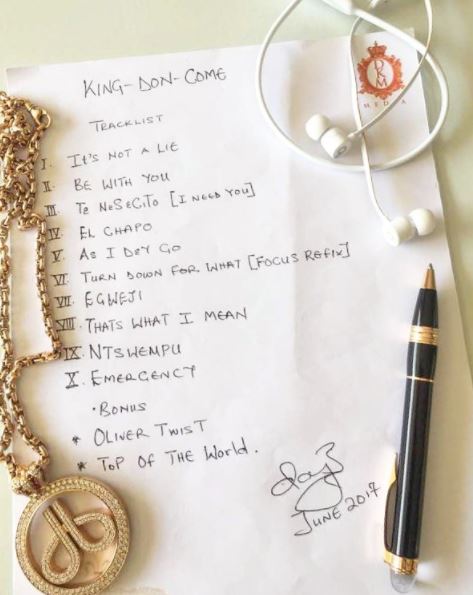 DKM
MEDIA
KING-DON-COME
TRACKLIST
I. It's NOT A LIE
II. BE WITH YOU
III. Te NeSeCiTo [I NEED YOU]
IV. EL CHAPO
V. As I DEY GO
VI. TURN DOWN FOR WHAT [FOCUS REFIX]
VII. EGWEJI
VIII. THATS WHAT I MEAN
IX. NTSWEMPU
X. EMERGENCY
• BONUS
* OLIVER TWIST
* ToP OF THE WorLD.
JUNE 2017